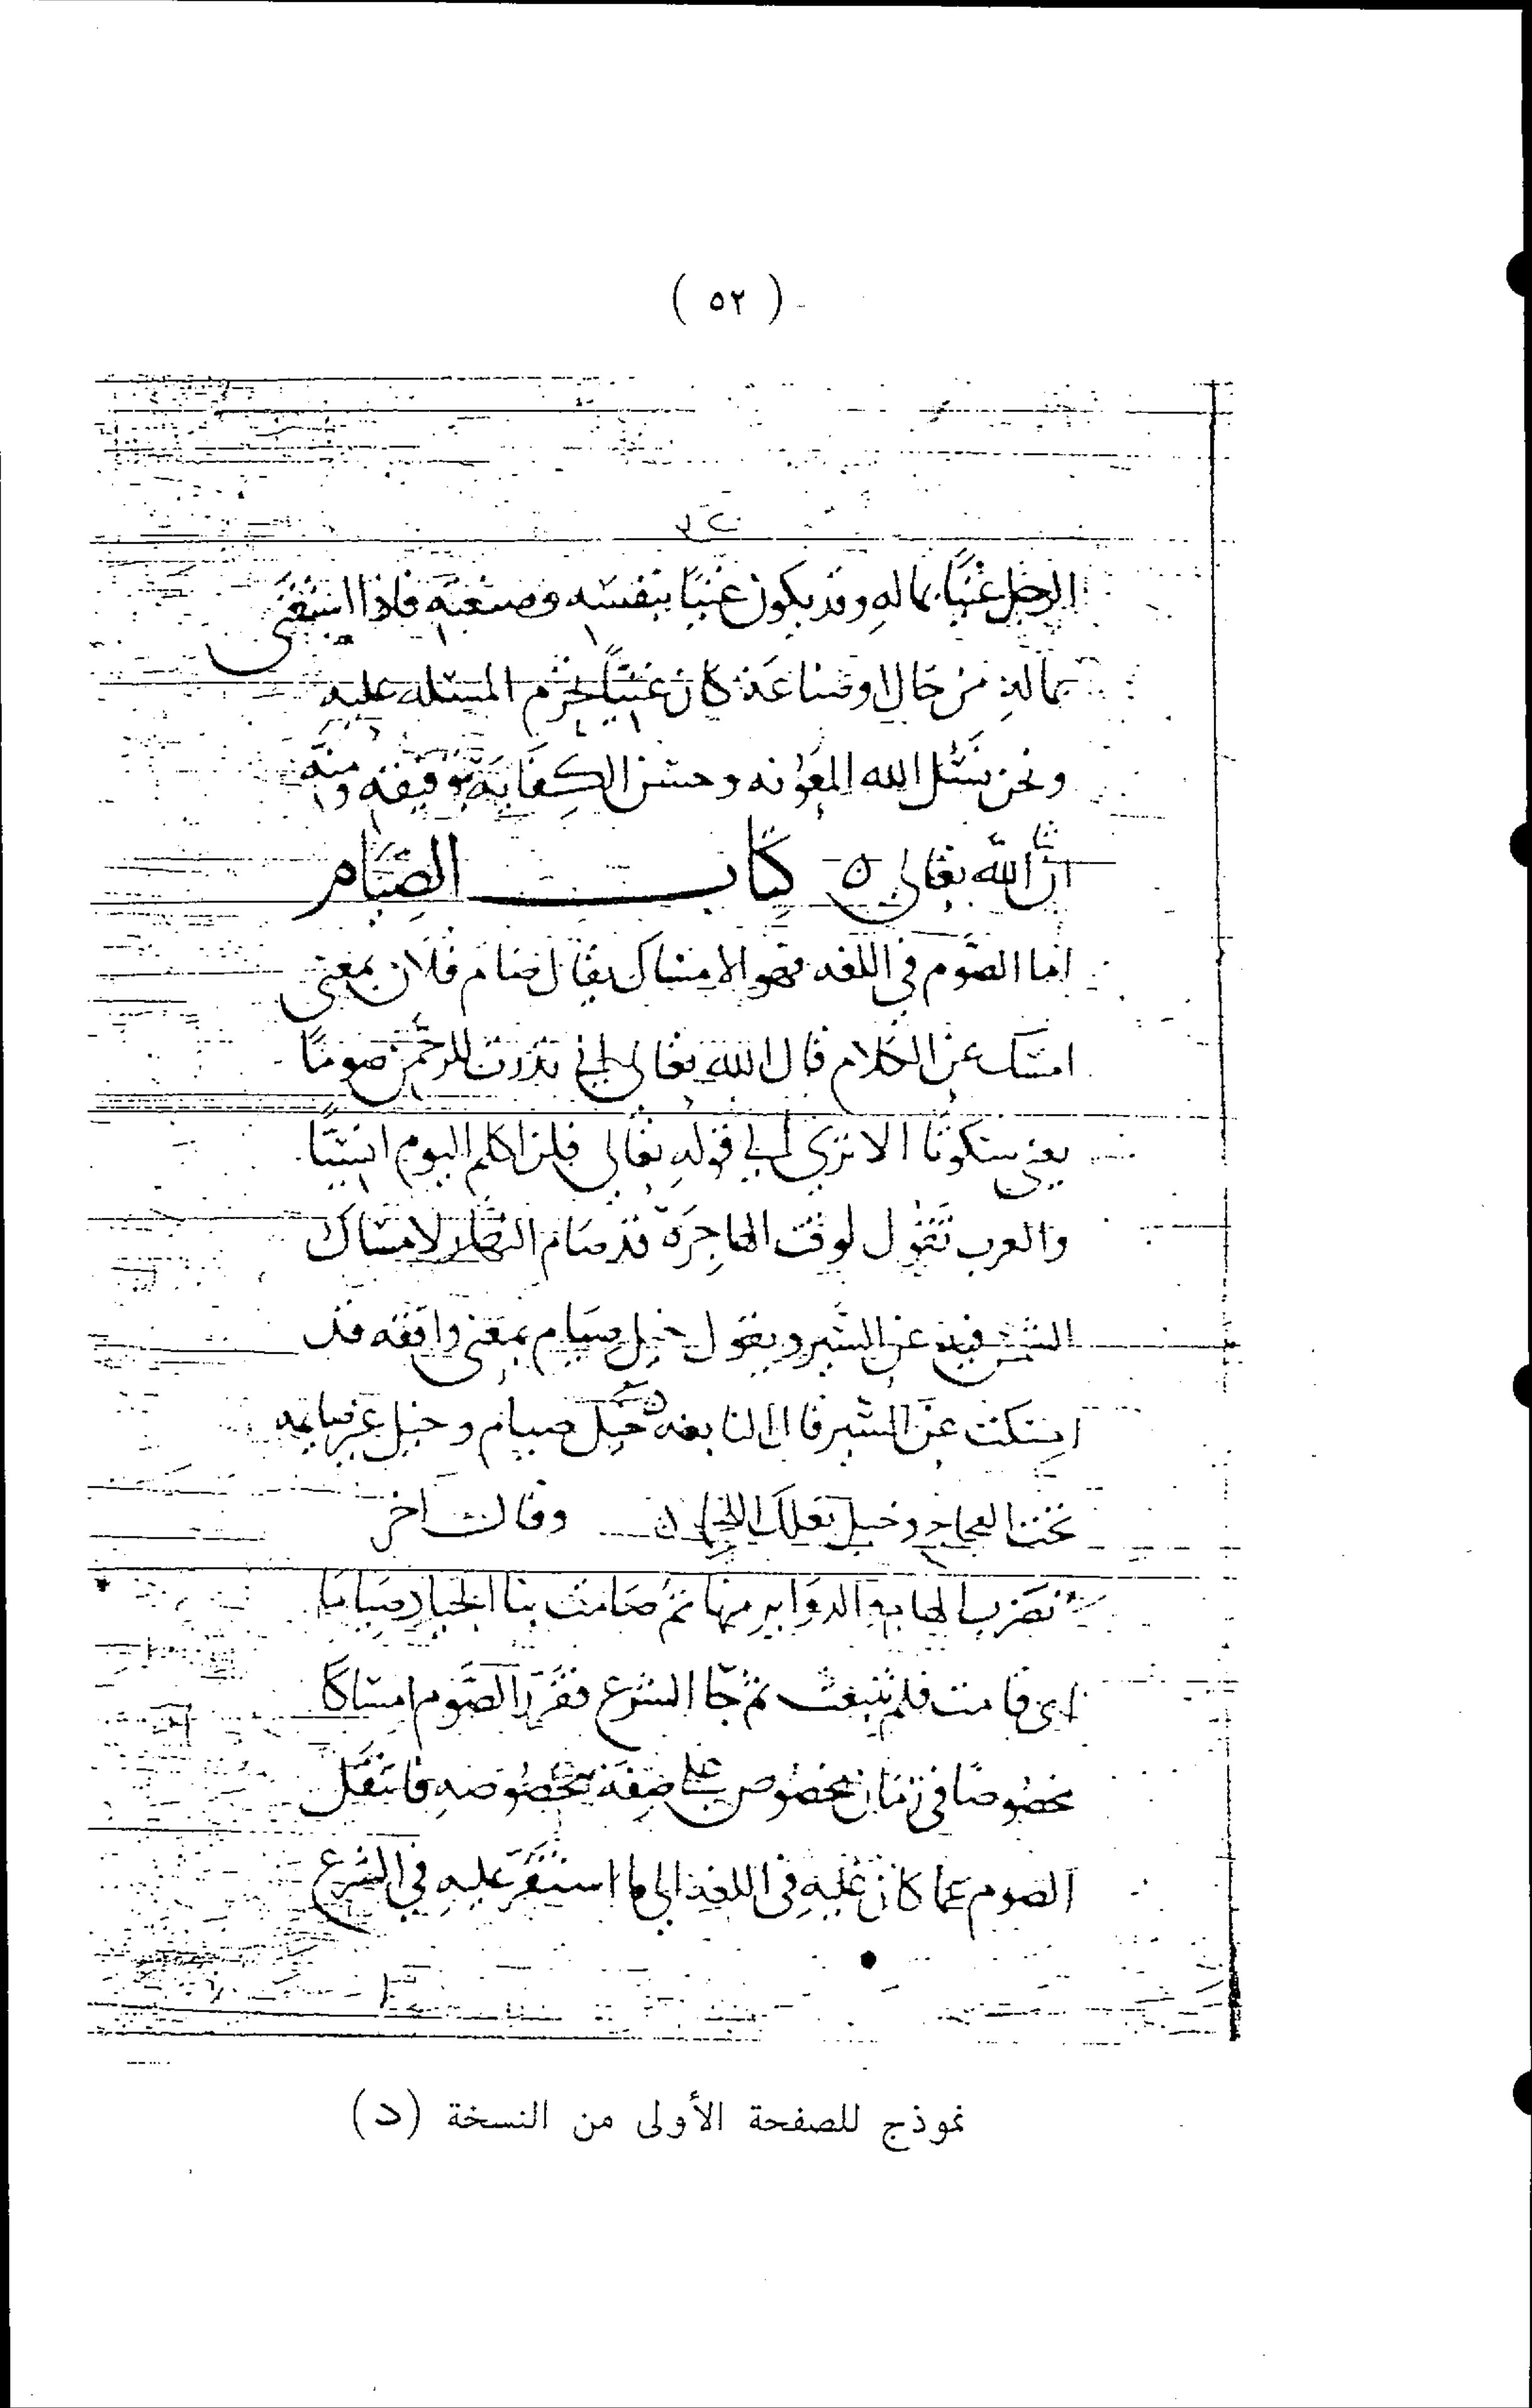 ( ٥٢ )
الرجل غنيًا بماله وقد يكون غنيًا بنفسه وصنعته فاذا استغنى
بماله من حال او صناعة كان غنيًا تحرم المسئله عليه
ونحن نسئل الله المعونه وحسن الكفاية بتوفيقه ومنه
ان شا الله تعالى ٥ كتاب الصيام
اما الصوم في اللغه فهو الامساك يقال صام فلان بمعنى
امسك عن الكلام قال الله تعالى اني نذرت للرحمن صومًا
يعني سكوتا الا ترى الى قوله تعالى فلن اكلم اليوم انسيًا
والعرب تقول لوقت الهاجرة قد صام النهار لامساك
الشمس فيه عن السير ويقول خيل صيام بمعنى واقفه قد
امسكت عن السير قال النابغه خيل صيام وخيل غير صايمه
تحت العجاج وخيل تعلك اللجما ٥ وقال اخر
نضرب الدوابر منها ثم صامت بنا الجياد صياما
اى قامت فلم تنبعث ثم جا الشرع فقرر الصوم امساكا
مخصوصا في زمان مخصوص على صفة مخصوصه فانتقل
الصوم عما كان عليه في اللغه الى ما استقر عليه في الشرع
نموذج للصفحة الأولى من النسخة (د)